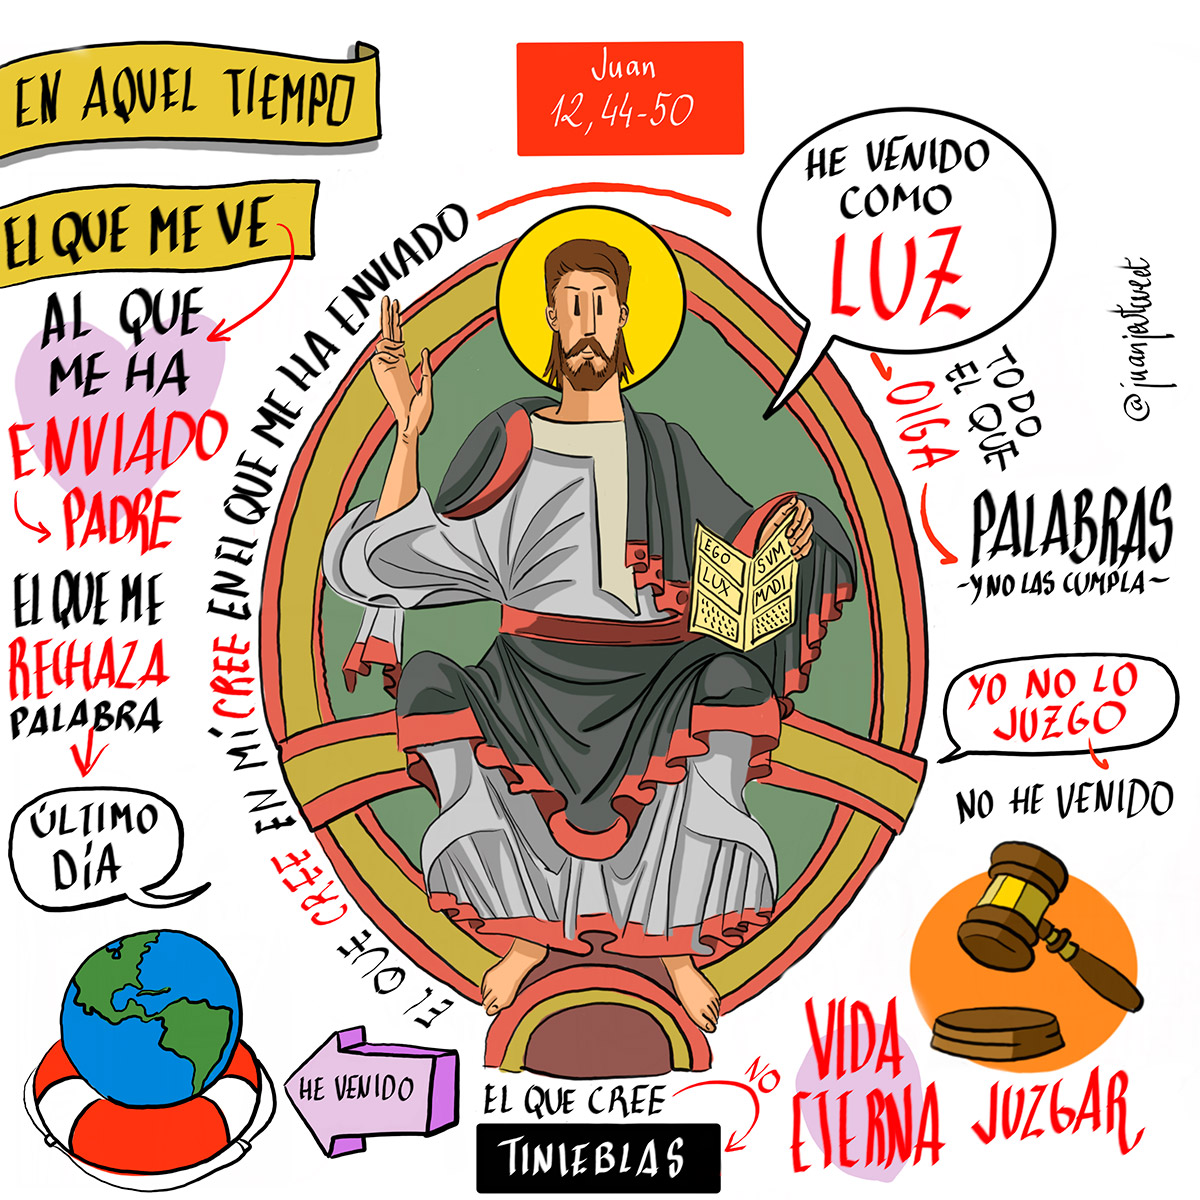 EN AQUEL TIEMPO
Juan
12, 44-50
EL QUE ME VE
AL QUE
ME HA
ENVIADO
PADRE
EL QUE ME
RECHAZA
PALABRA
ÚLTIMO
DÍA
EL QUE CREE EN MÍ CREE EN EL QUE ME HA ENVIADO
HE VENIDO
COMO
LUZ
@juanjotweet
OIGA
TODO
EL QUE
PALABRAS
-Y NO LAS CUMPLA-
EGO
LUX
SUM
MADI
YO NO LO
JUZGO
NO HE VENIDO
JUZGAR
VIDA
ETERNA
HE VENIDO
EL QUE CREE
NO
TINIEBLAS